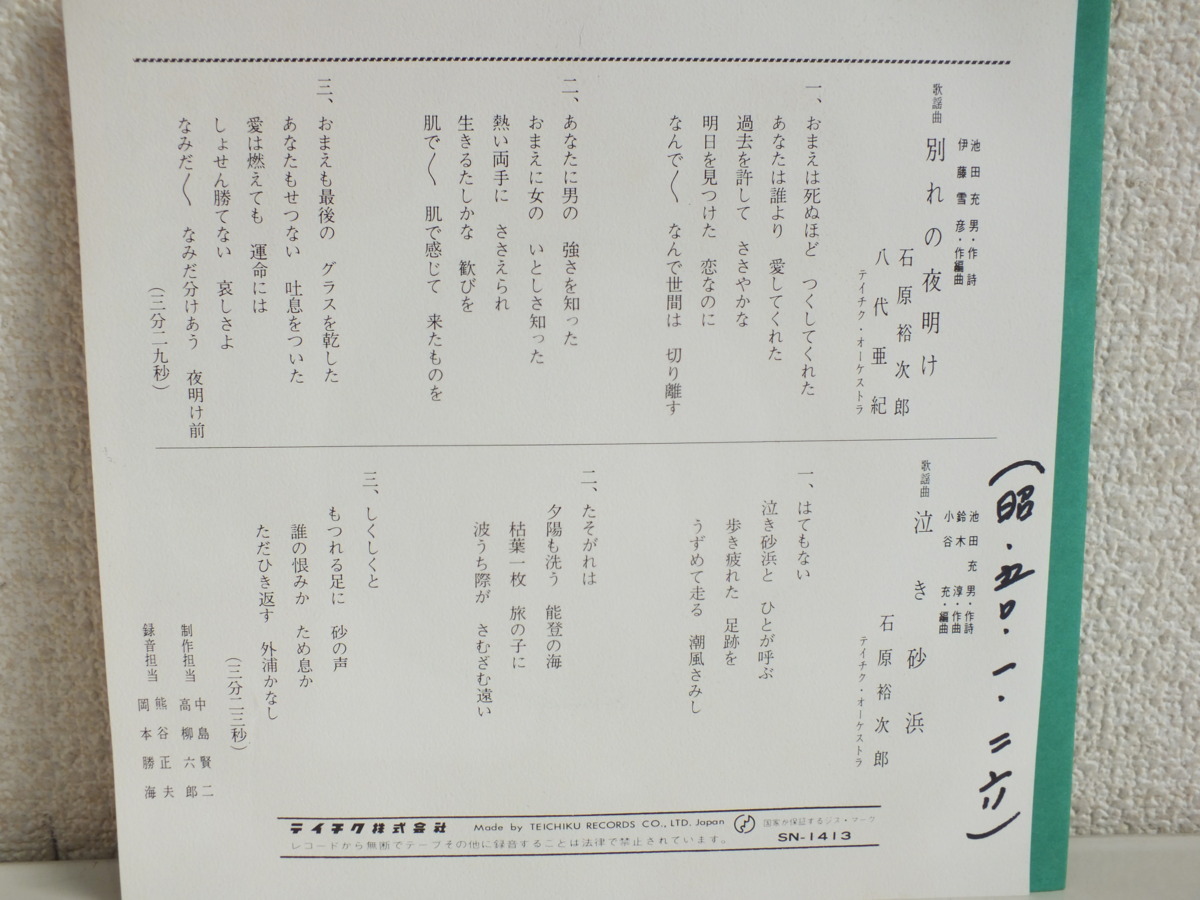 歌謡曲
別れの夜明け
池田充男・作詩
伊藤雪彦・作編曲
石原裕次郎
八代亜紀
テイチク・オーケストラ
一、おまえは死ぬほど　つくしてくれた
あなたは誰より　愛してくれた
過去を許して　ささやかな
明日を見つけた　恋なのに
なんで〱　なんで世間は　切り離す
二、あなたに男の　強さを知った
おまえに女の　いとしさ知った
熱い両手に　ささえられ
生きるたしかな　歓びを
肌で〱　肌で感じて　来たものを
三、おまえも最後の　グラスを乾した
あなたもせつない　吐息をついた
愛は燃えても　運命には
しょせん勝てない　哀しさよ
なみだ〱　なみだ分けあう　夜明け前
（三分二九秒）
歌謡曲
泣き砂浜
池田充男・作詩
鈴木淳・作曲
小谷充・編曲
石原裕次郎
テイチク・オーケストラ
一、はてもない
泣き砂浜と　ひとが呼ぶ
歩き疲れた　足跡を
うずめて走る　潮風さみし
二、たそがれは
夕陽も洗う　能登の海
枯葉一枚　旅の子に
波うち際が　さむざむ遠い
三、しくしくと
もつれる足に　砂の声
誰の恨みか　ため息か
ただひき返す　外浦かなし
（三分二三秒）
制作担当　中島賢二
高柳六郎
録音担当　熊谷正夫
岡本勝海
（昭・五〇・一・二六リ）
テイチク株式会社　Made by TEICHIKU RECORDS CO., LTD. Japan
国家が保証するジス・マーク
レコードから無断でテープその他に録音することは法律で禁止されています。
SN-1413